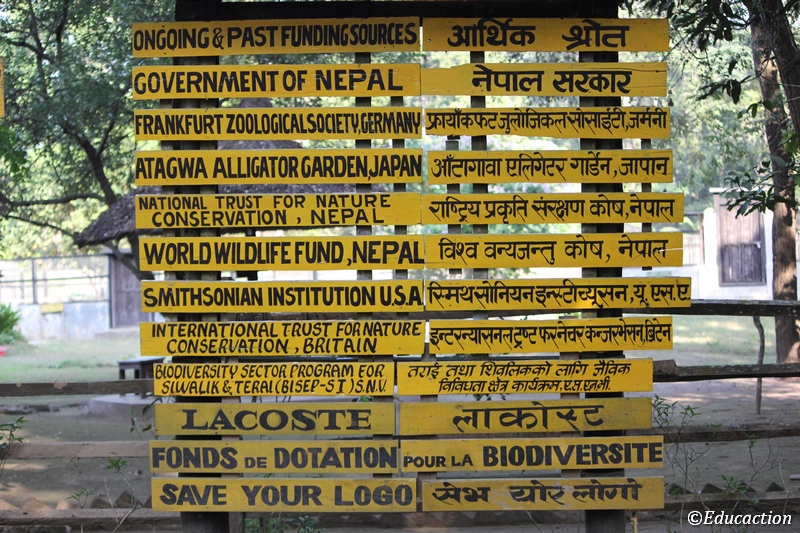 ONGOING & PAST FUNDING SOURCES आर्थिक श्रोत
GOVERNMENT OF NEPAL नेपाल सरकार
FRANKFURT ZOOLOGICAL SOCIETY, GERMANY फ्रायाँकफट जुलोजिकल सोसाईटी, जर्मनी
ATAGWA ALLIGATOR GARDEN, JAPAN आँटागावा एलिगेटर गार्डेन, जापान
NATIONAL TRUST FOR NATURE CONSERVATION, NEPAL राष्ट्रिय प्रकृति संरक्षण कोष, नेपाल
WORLD WILDLIFE FUND, NEPAL विश्व वन्यजन्तु कोष, नेपाल
SMITHSONIAN INSTITUTION U.S.A स्मिथसोनियन इन्स्टीच्यूसन, यू. एस.ए
INTERNATIONAL TRUST FOR NATURE CONSERVATION, BRITAIN इन्टरन्यासनल ट्रष्ट फर नेचर कन्जरभेसन, ब्रिटेन
BIODIVERSITY SECTOR PROGRAM FOR SIWALIK & TERAI (BISEP-ST) S.N.V. तराई तथा शिवालिकको लागि जैविक विविधता क्षेत्र कार्यक्रम. एस.एन.भी.
LACOSTE लाकोस्ट
FONDS DE DOTATION POUR LA BIODIVERSITE
SAVE YOUR LOGO सेभ योर लोगो
©Educaction